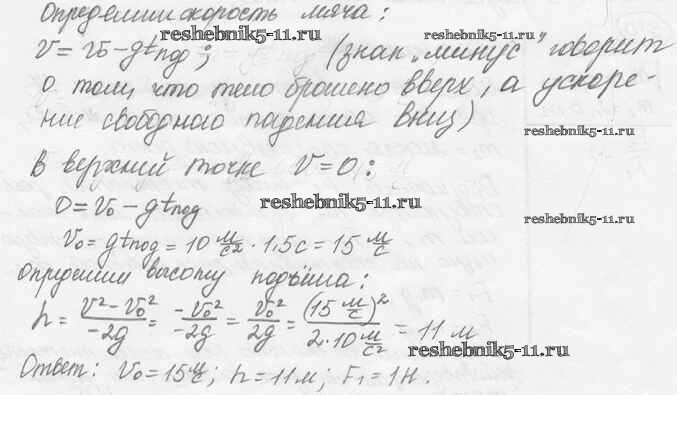 Определим скорость мяча:
reshebnik5-11.ru reshebnik5-11.ru
V = V₀ - gtпод; (знак „минус" говорит
о том, что тело брошено вверх, а ускоре-
ние свободного падения вниз)
reshebnik5-11.ru
В верхней точке V = 0:
0 = V₀ - gtпод
reshebnik5-11.ru
reshebnik5-11.ru
V₀ = gtпод = 10 м/с² · 1.5с = 15 м/с
Определим высоту подъёма:
h = (V² - V₀²)/(-2g) = (-V₀²)/(-2g) = V₀²/(2g) = (15 м/с)²/(2·10 м/с²) = 11 м
reshebnik5-11.ru
Ответ: V₀ = 15 м/с; h = 11 м; F₁ = 1Н.